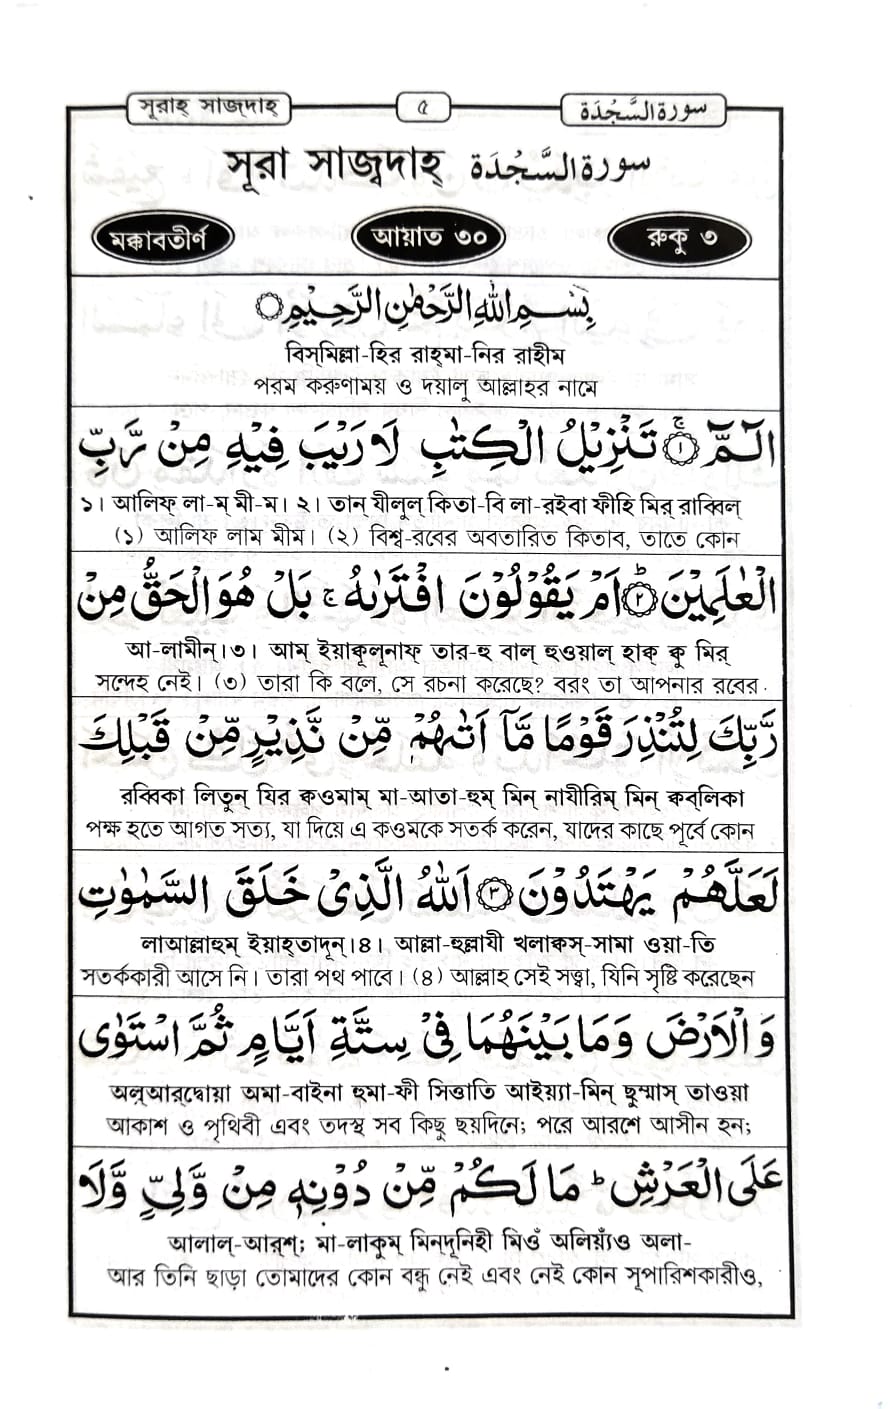 সূরাহ্ সাজ্‌দাহ্ ৫ سورة السَّجْدَة
সূরা সাজ্বদাহ্ سورة السَّجْدَة
মক্কাবতীর্ণ আয়াত ৩০ রুকু ৩
بِسْمِ اللّٰهِ الرَّحْمٰنِ الرَّحِيْمِ
বিস্‌মিল্লা-হির রাহ্‌মা-নির রাহীম
পরম করুণাময় ও দয়ালু আল্লাহর নামে
الٓمّٓ ۚ﴿١﴾ تَنْزِيْلُ الْكِتٰبِ لَا رَيْبَ فِيْهِ مِنْ رَّبِّ
১। আলিফ্ লা-ম্ মী-ম। ২। তান্ যীলুল্ কিতা-বি লা-রইবা ফীহি মির্ রাব্বিল্
(১) আলিফ লাম মীম। (২) বিশ্ব-রবের অবতারিত কিতাব, তাতে কোন
الْعٰلَمِيْنَ ؕ﴿٢﴾ اَمْ يَقُوْلُوْنَ افْتَرٰىهُ ۚ بَلْ هُوَ الْحَقُّ مِنْ
আ-লামীন্।৩। আম্ ইয়াকূলূনাফ্ তার-হু বাল্ হুওয়াল্ হাক্ কু মির্
সন্দেহ নেই। (৩) তারা কি বলে, সে রচনা করেছে? বরং তা আপনার রবের
رَّبِّكَ لِتُنْذِرَ قَوْمًا مَّآ اَتٰىهُمْ مِّنْ نَّذِيْرٍ مِّنْ قَبْلِكَ
রব্বিকা লিতুন্ যির ক্বওমাম্ মা-আতা-হুম্ মিন্ নাযীরিম্ মিন্ ক্বব্‌লিকা
পক্ষ হতে আগত সত্য, যা দিয়ে এ কওমকে সতর্ক করেন, যাদের কাছে পূর্বে কোন
لَعَلَّهُمْ يَهْتَدُوْنَ ﴿٣﴾ اَللّٰهُ الَّذِيْ خَلَقَ السَّمٰوٰتِ
লাআল্লাহুম্ ইয়াহ্‌তাদূন্।৪। আল্লা-হুল্লাযী খলাক্বস্-সামা ওয়া-তি
সতর্ককারী আসে নি। তারা পথ পাবে। (৪) আল্লাহ সেই সত্ত্বা, যিনি সৃষ্টি করেছেন
وَالْاَرْضَ وَمَا بَيْنَهُمَا فِيْ سِتَّةِ اَيَّامٍ ثُمَّ اسْتَوٰى
অল্‌আর্‌দ্বোয়া অমা-বাইনা হুমা-ফী সিত্তাতি আইয়্যা-মিন্ ছুম্মাস্ তাওয়া
আকাশ ও পৃথিবী এবং তদস্থ সব কিছু ছয়দিনে; পরে আরশে আসীন হন;
عَلَى الْعَرْشِ ؕ مَا لَكُمْ مِّنْ دُوْنِهٖ مِنْ وَّلِيٍّ وَّلَا
আলাল্-আরশ্; মা-লাকুম্ মিন্‌দূনিহী মিওঁ অলিয়্যিঁও অলা-
আর তিনি ছাড়া তোমাদের কোন বন্ধু নেই এবং নেই কোন সূপারিশকারীও,